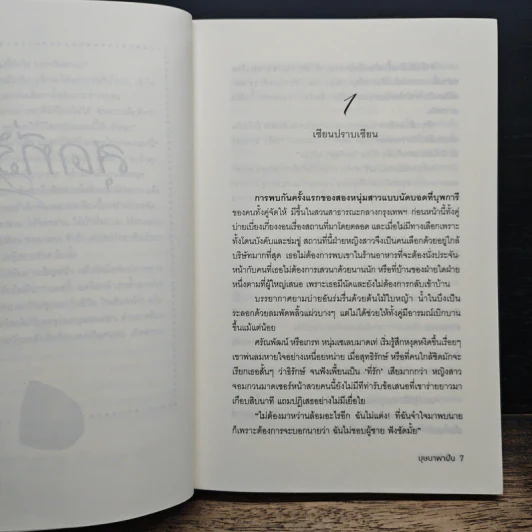 สุดที่รั
1
เซียนปราบเซียน
การพบกันครั้งแรกของสองหนุ่มสาวแบบนัดบอดที่บุพการี
ของคนทั้งคู่จัดให้ มีขึ้นในสวนสาธารณะกลางกรุงเทพฯ ก่อนหน้านี้ทั้งคู่
บ่ายเบี่ยงเกี่ยงงอนเรื่องสถานที่มาโดยตลอด และเมื่อไม่มีทางเลือกเพราะ
ทั้งโดนบังคับและข่มขู่ สถานที่นี้ฝ่ายหญิงสาวจึงเป็นคนเลือกด้วยอยู่ใกล้
บริษัทมากที่สุด เธอไม่ต้องการพบเขาในร้านอาหารที่จะต้องนั่งประจัน-
หน้ากับคนที่เธอไม่ต้องการเสวนาด้วยนานนัก หรือที่บ้านของฝ่ายใดฝ่าย
หนึ่งตามที่ผู้ใหญ่เสนอ เพราะเธอมีนัดและยังไม่ต้องการกลับเข้าบ้าน
บรรยากาศยามบ่ายอันร่มรื่นด้วยต้นไม้ใบหญ้า น้ำในบึงเป็น
ระลอกด้วยลมพัดพลิ้วแผ่วบางๆ แต่ไม่ได้ช่วยให้ทั้งคู่มีอารมณ์เบิกบาน
ขึ้นแม้แต่น้อย
ศรัณพัฒน์ หรือเกรท หนุ่มเซเลบมาดเท่ เริ่มรู้สึกหงุดหงิดขึ้นเรื่อยๆ
เขาพ่นลมหายใจอย่างเหนื่อยหน่าย เมื่อสุทธิรักษ์ หรือที่คนใกล้ชิดมักจะ
เรียกเธอสั้นๆ ว่าธิรักษ์ จนฟังเพี้ยนเป็น 'ที่รัก' เสียมากกว่า หญิงสาว
จอมกวนมาดเซอร์หน้าสวยคนนี้ยังไม่มีทีท่ารับข้อเสนอที่เขาร่ายยาวมา
เกือบสิบนาที แถมปฏิเสธอย่างไม่มีเยื่อใย
"ไม่ต้องมาหว่านล้อมอะไรอีก ฉันไม่แต่ง! ที่ฉันจำใจมาพบนาย
ก็เพราะต้องการจะบอกนายว่า ฉันไม่ชอบผู้ชาย ฟังชัดมั้ย"
บุษบาพาฝัน 7